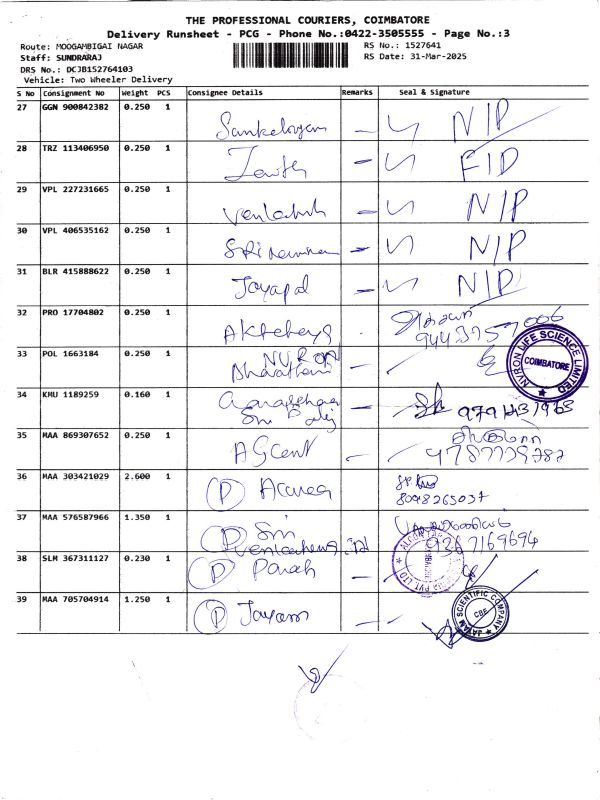 THE PROFESSIONAL COURIERS, COIMBATORE
Delivery Runsheet - PCG - Phone No.:0422-3505555 - Page No.:3
Route: MOOGAMBIGAI NAGAR
RS No.: 1527641
Staff: SUNDRARAJ
RS Date: 31-Mar-2025
DRS No.: DCJB152764103
Vehicle: Two Wheeler Delivery
S No Consignment No Weight PCS Consignee Details Remarks Seal & Signature
27 GGN 900842382 0.250 1 N/P
28 TRZ 113406950 0.250 1 Zenith F I D
29 VPL 227231665 0.250 1 N/P
30 VPL 406535162 0.250 1 N/P
31 BLR 415888622 0.250 1 Jayapal N/P
32 PRO 17704802 0.250 1
33 POL 1663184 0.250 1 NVRON Bharatham
NVRON LIFE SCIENCE LIMITED COIMBATORE
34 KMU 1189259 0.160 1
35 MAA 869307652 0.250 1 AScent
36 MAA 303421029 2.600 1 P
8098265037
37 MAA 576587966 1.350 1 P Sri
9367169694
38 SLM 367311127 0.230 1 P
39 MAA 705704914 1.250 1 P Jayam
JAYAM SCIENTIFIC COMPANY CBE